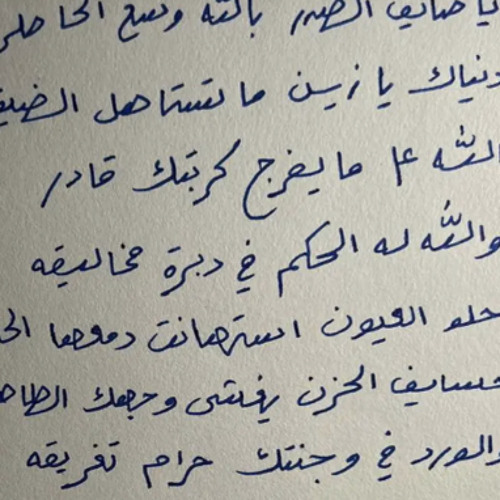 يا ضايق الصدر بالله وسع الخاطر
دنياك يا زين ما تستاهل الضيقه
الله على ما يفرج كربتك قادر
والله له الحكم في دبرة مخاليقه
حلو العيون استهانت دمعها
حسايف الحزن يغشى وجهك الطاهر
والورد في وجنتك حرام تفريقه